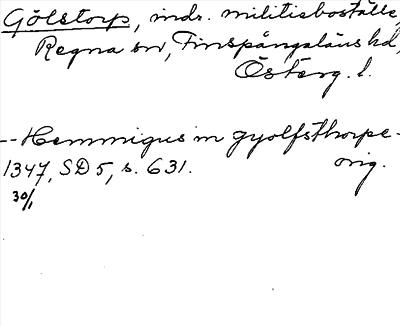 Gölstorp, indr. militieboställe,
Regna sn, Finspångaläns hd,
Österg. l.
-- Hemmigus in gyolfsthorpe -
1347, SD 5, s. 631. orig.
30/1